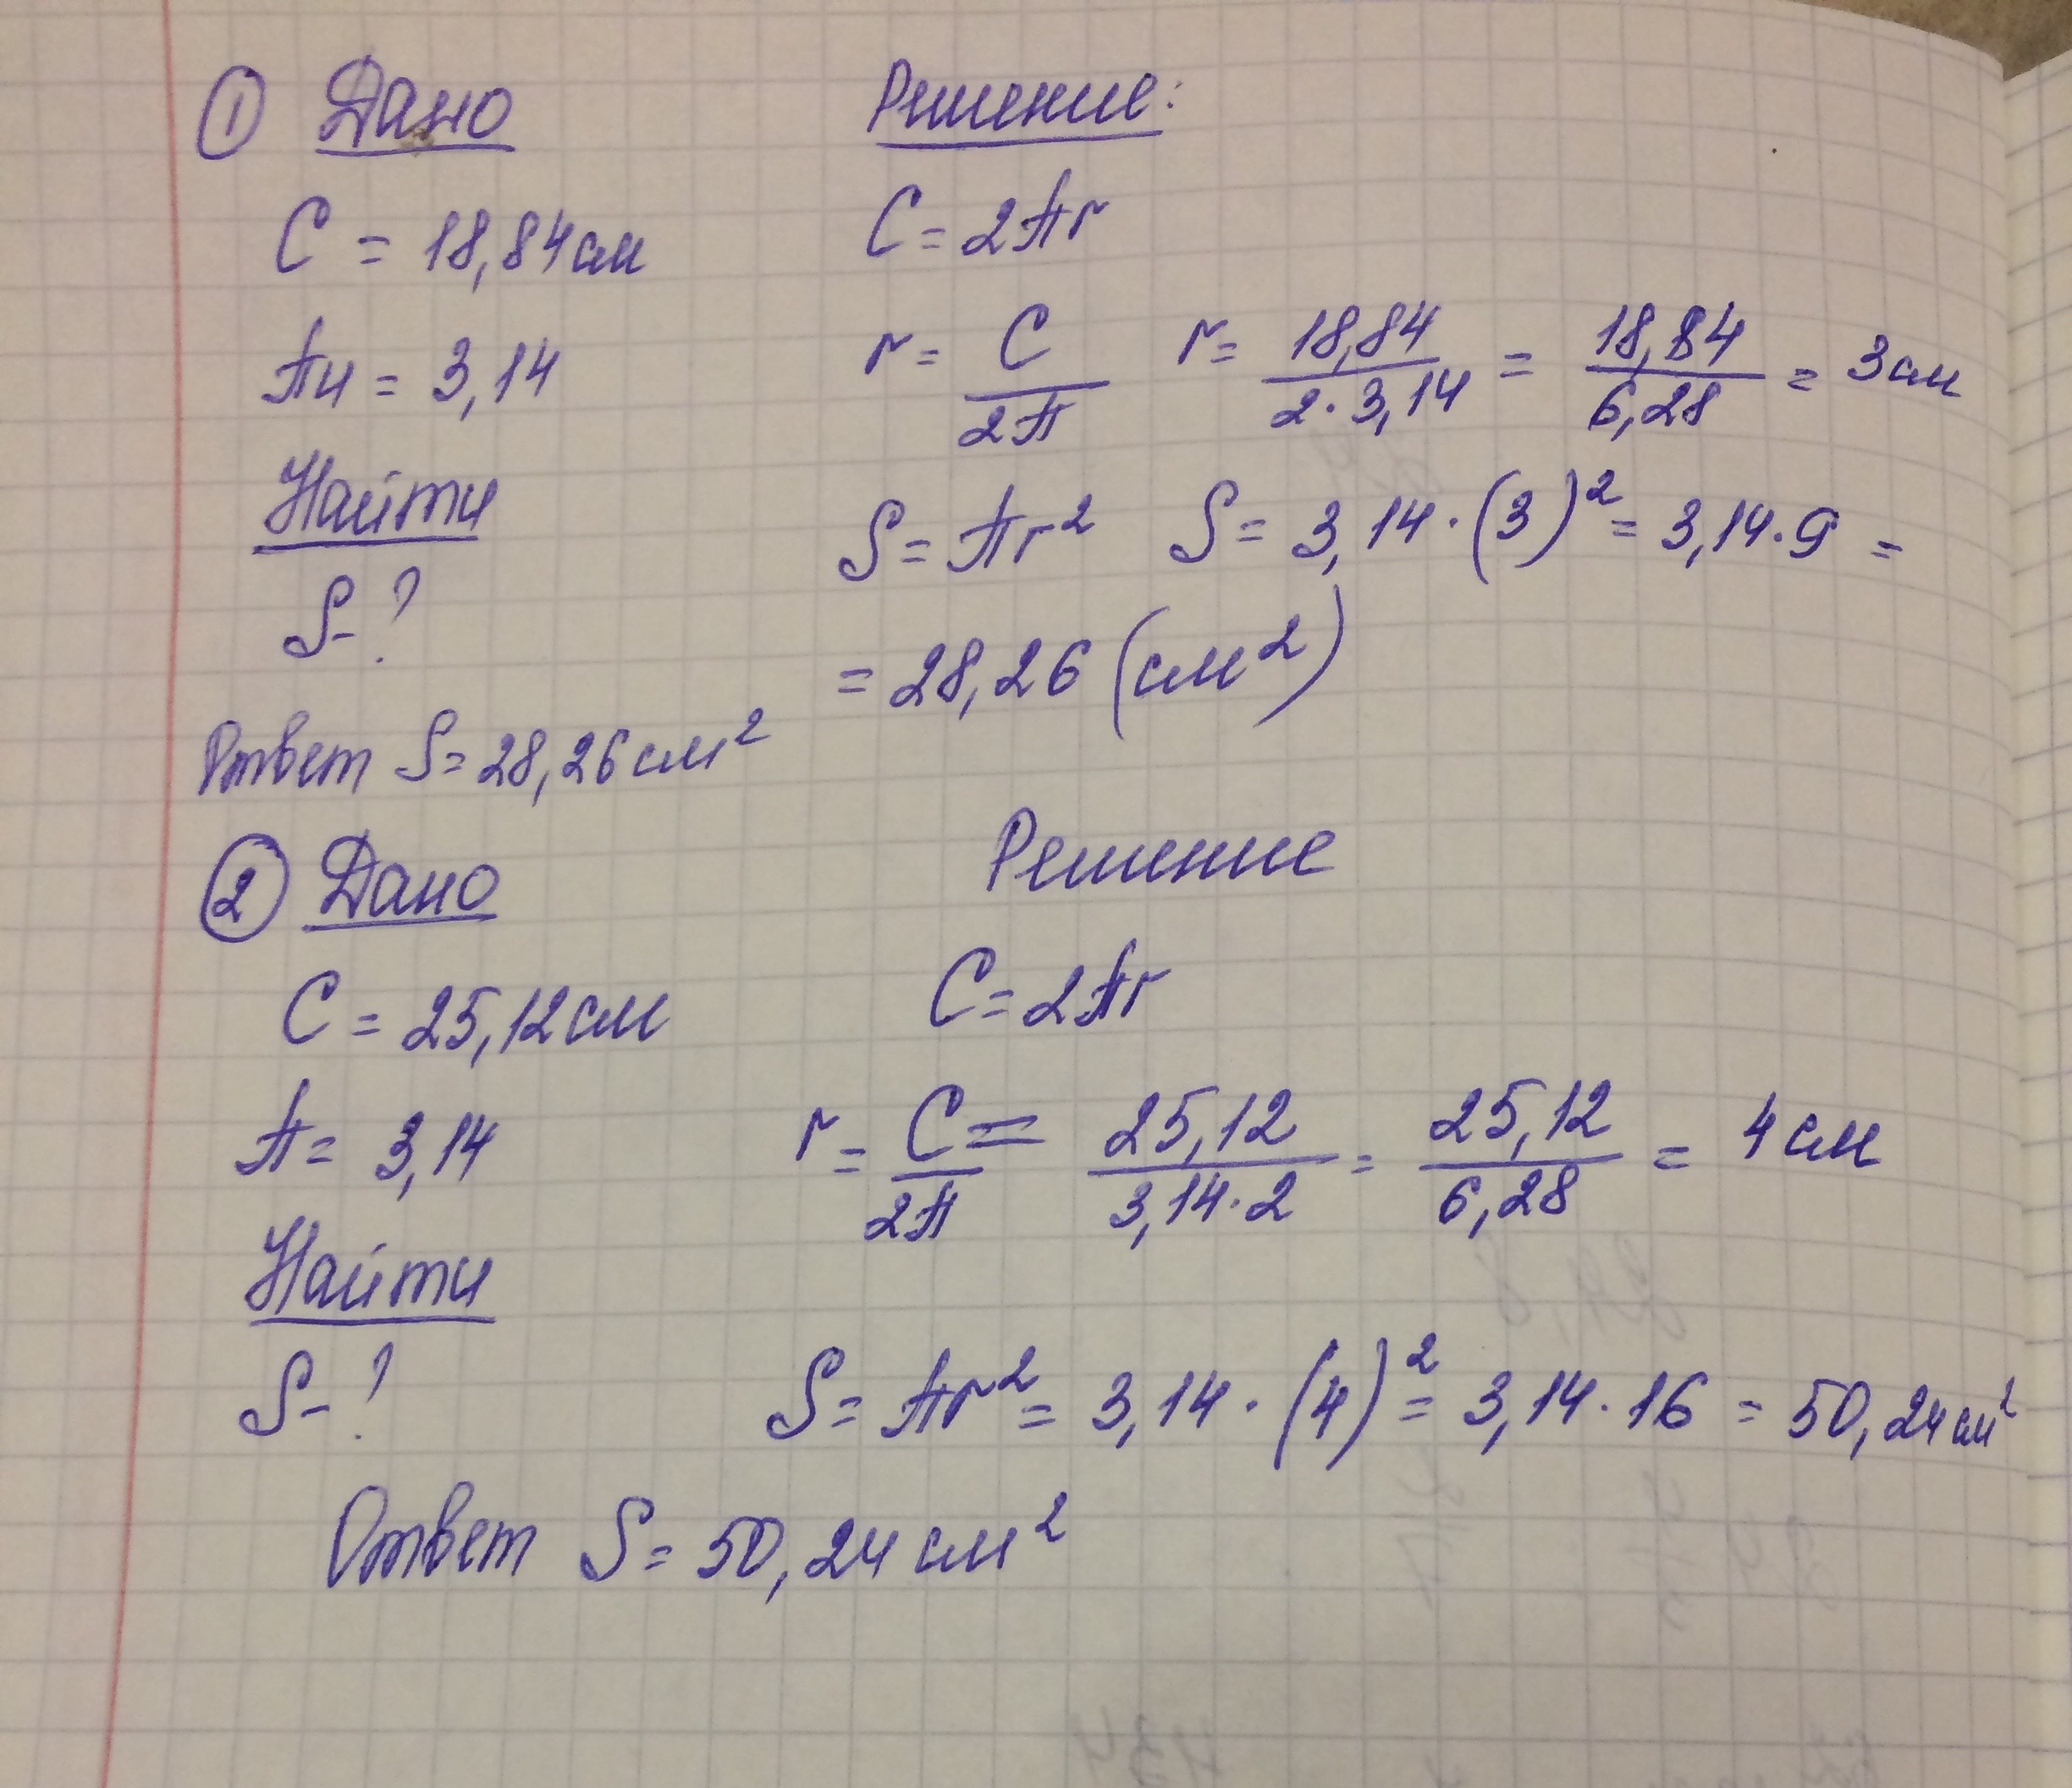 ① Дано
С = 18,84см
Пи = 3,14
Найти
S-?
Решение:
С = 2πr
r = C/2π r = 18,84/2·3,14 = 18,84/6,28 = 3см
S = πr² S = 3,14·(3)² = 3,14·9 =
= 28,26 (см²)
Ответ S = 28,26см²
② Дано
С = 25,12см
π = 3,14
Найти
S-?
Решение
С = 2πr
r = C/2π = 25,12/3,14·2 = 25,12/6,28 = 4см
S = πr² = 3,14·(4)² = 3,14·16 = 50,24см²
Ответ S = 50,24см²